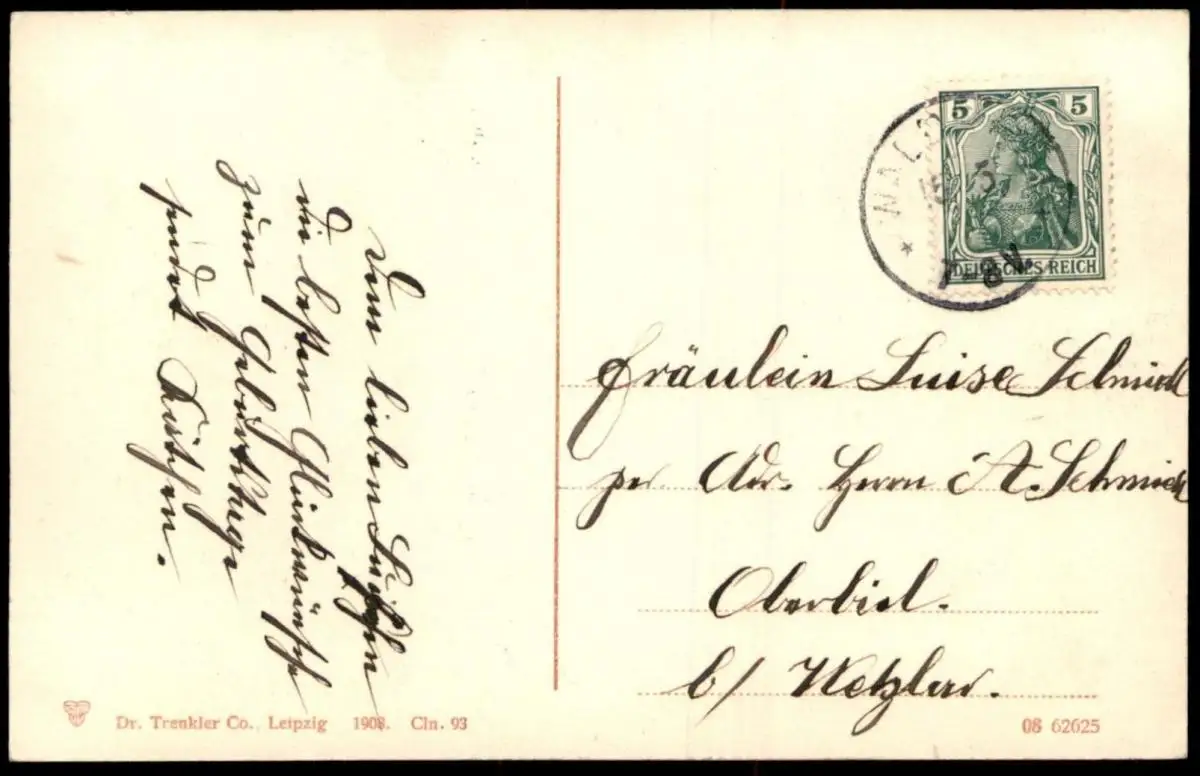 Dem lieben Luischen
die besten Glückwünsche
zum Geburtstage
sendet
5 5
DEUTSCHES REICH
WALD
7-8V.
Fräulein Luise Schmidt
per Adr. Herrn A. Schmidt
Oberbiel.
b/ Wetzlar.
Dr. Trenkler Co., Leipzig 1908. Cln. 93
08 62625